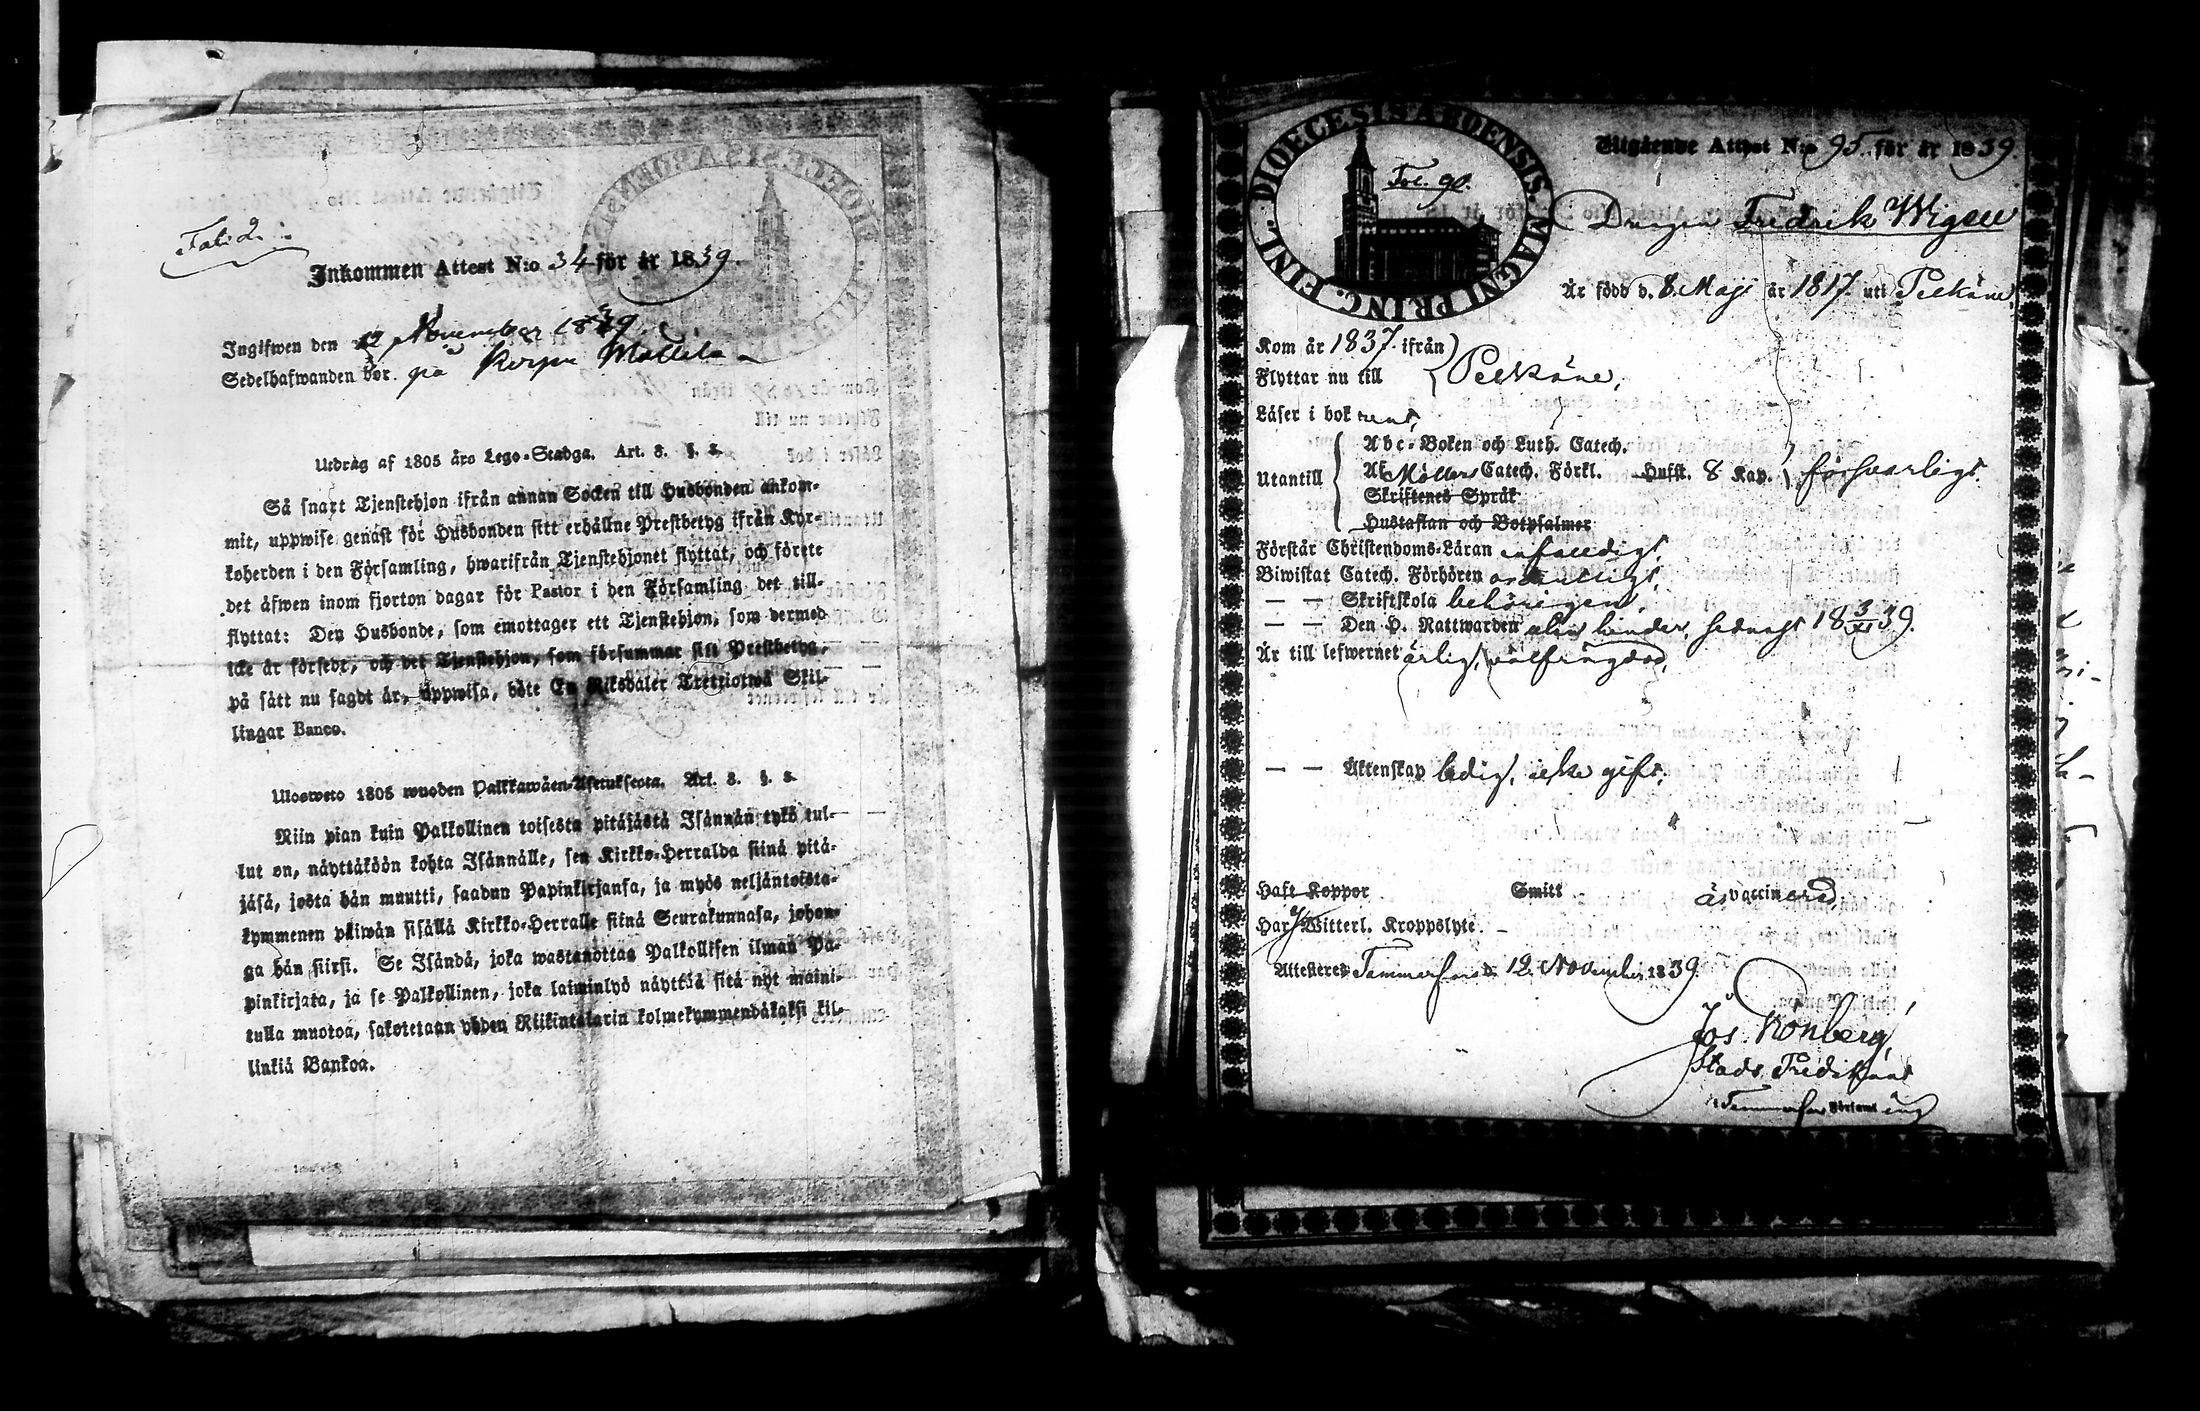 Inkommen Attest N:o 34 för år 1839.
Ingifwen den 12 November 1839.
Sedelhafwanden bor. på Korpu Mattila
Utdrag af 1805 års Lego-Stadga. Art. 3. §. 2.
Så snart Tjenstehjon ifrån annan Socken till Husbonden ankom-
mit, uppwise genast för Husbonden sitt erhållne Prestbetyg ifrån Kyr-
koherden i den Församling, hwarifrån Tjenstehjonet flyttat, och förete
det äfwen inom fjorton dagar för Pastor i den Församling det till-
flyttat: Den Husbonde, som emottager ett Tjenstehjon, som dermed
icke är försedt, och det Tjenstehjon, som försummar sitt Prestbetyg,
på sätt nu sagdt är, uppwisa, böte En Riksdaler Trettiotwå Skil-
lingar Banco.
Ulosweto 1805 wuoden Palkkawäen-Asetuksesta. Art. 3. §. 2.
Niin pian kuin Palkollinen toisesta pitäjästä Isännän tykö tul-
lut on, näyttäköön kohta Isännälle, sen Kirkko-Herralda siinä pitä-
jäsä, josta hän muutti, saadun Papinkirjansa, ja myös neljäntoista-
kymmenen päiwän sisällä Kirkko-Herralle siinä Seurakunnasa, johon-
ga hän siirsi. Se Isändä, joka wastanottaa Palkollisen ilman Pa-
pinkirjata, ja se Palkollinen, joka laiminlyö näyttää sitä nyt maini-
tulla muotoa, sakotetaan yhden Riikintalarin kolmekymmendäkaksi kil-
linkiä Bankoa.
DIOECESIS ABOENSIS. MAGNI PRINC. FINL.
Fol. 90.
Utgående Attest N:o 95 för år 1839.
Drengen Fredrik Wigell
Är född d. 8. Maji år 1817. uti Pelkäne,
Kom år 1837. ifrån
Flyttar nu till Pelkäne,
Läser i bok rent,
Utantill
Abc-Boken och Luth. Catech.
Af Möllers Catech. Förkl. Hufst. 8 Kap. försvarligt.
Skriftenes Språk
Hustaflan och Botpsalmer
Förstår Christendoms-Läran enfaldigt
Biwistat Catech. Förhören ordentligt,
— — Skriftskola behörigen,
— — Den H. Nattwarden utan hinder, sednast 18 3/XI 39.
Är till lefwernet ärlig, välfrägdad,
— — Äktenskap ledig, icke gift,
Haft Koppor Smitt äs vaccinerad,
Har ej Witterl. Kroppslyte.
Attesteres Tammerfors d. 12 November 1839.
Jos. Rönberg,
Stads Predikant
i Tammerfors Församling